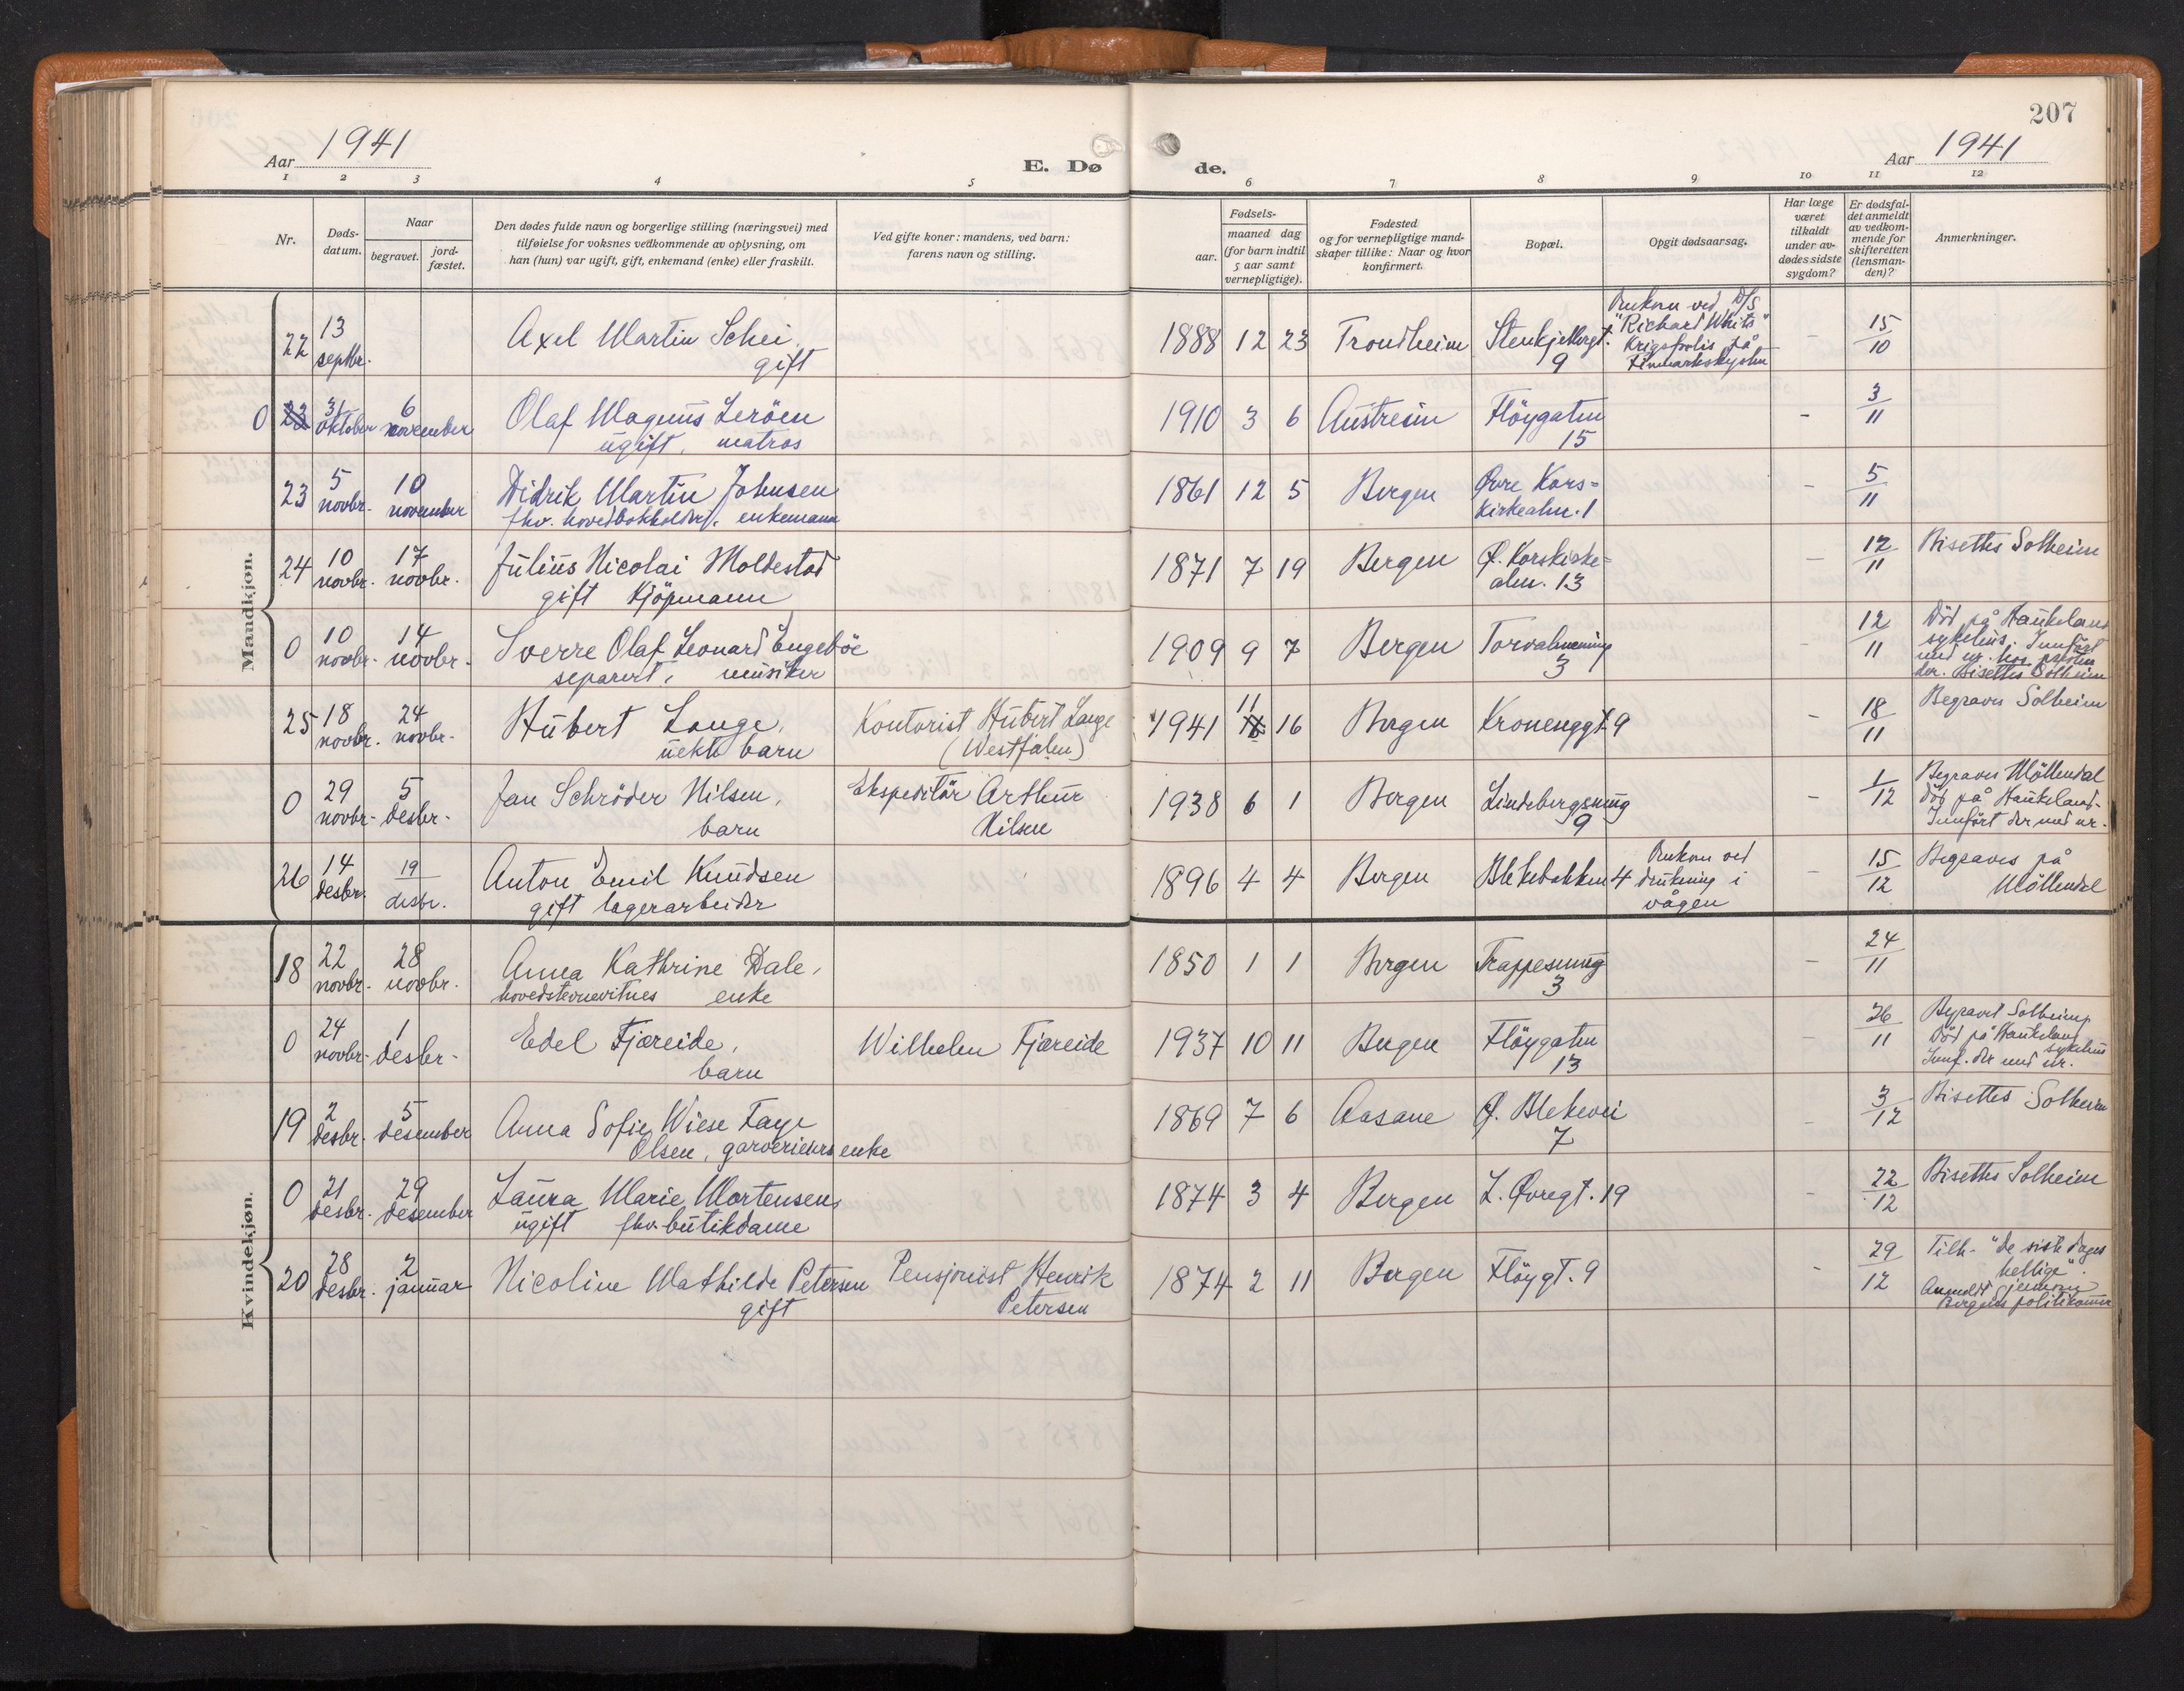 207
Aar 1941
E. Dø
de.
Aar 1941
1 2 3 4 5 6 7 8 9 10 11 12
Nr.
Døds-
datum.
Naar
begravet.
jord-
fæstet.
Den dødes fulde navn og borgerlige stilling (næringsvei) med
tilføielse for voksnes vedkommende av oplysning, om
han (hun) var ugift, gift, enkemand (enke) eller fraskilt.
Ved gifte koner: mandens, ved barn:
farens navn og stilling.
Fødsels-
aar.
maaned dag
(for barn indtil
5 aar samt
vernepligtige).
Fødested
og for vernepligtige mand-
skaper tillike: Naar og hvor
konfirmert.
Bopæl.
Opgit dødsaarsag.
Har læge
været
tilkaldt
under av-
dødes sidste
sygdom?
Er dødsfal-
det anmeldt
av vedkom-
mende for
skifteretten
(lensman-
den)?
Anmerkninger.
Mandkjøn.
22 13 septbr. Axel Martin Schei,
gift
1888 12 23 Trondheim Stenkjellergt.
9
Omkom ved D/S
"Richard Whits"
Krigsforlis på
Finmarkskysten
- 15/10
0 23 31 oktober 6 november Olaf Magnus Leröen
ugift, matros
1910 3 6 Austreim Flöygaten
15
- 3/11
23 5 novbr. 10 november Didrik Martin Johnsen
fhv. hovedbokholder, enkemann
1861 12 5 Bergen Øvre Kors=
kirkealm. 1
- 5/11
24 10 novbr. 17 novbr. Julius Nicolai Moldestad
gift Kjöpmann
1871 7 19 Bergen Ø. Korskirke=
alm. 13
- 12/11 Bisettes Solheim
0 10 novbr. 14 novbr. Sverre Olaf Leonard Engeböe
separert, musiker
1909 9 7 Bergen Torvalmening
3
- 12/11 Död på Haukeland
sykehus. Innfört
med nr. hos presten
der. Bisettes Solheim
25 18 novbr. 24 novbr. Hubert Lange,
uekte barn
Kontorist Hubert Lange
(Westfalen)
1941 11 16 Bergen Kronenggt. 9
- 18/11 Begraves Solheim
0 29 novbr. 5 desbr. Jan Schröder Nilsen,
barn
Ekspeditör Arthur
Nilsen
1938 6 1 Bergen Lindebergsmug
9
- 1/12 Begraves Möllendal
Död på Haukeland-
Innfört der med nr.
26 14 desbr. 19 desbr. Anton Emil Knudsen
gift lagerarbeider
1896 4 4 Bergen Blekebakken 4
Omkom ved
drukning i
vågen
- 15/12 Begraves på
Möllendal
Kvindekjøn.
18 22 novbr. 28 novbr. Anna Kathrine Dale,
hovedstevnevitnes enke
1850 1 1 Bergen Trappesmug
3
- 24/11
0 24 novbr. 1 desbr. Edel Fjæreide,
barn
Wilhelm Fjæreide
1937 10 11 Bergen Flöygaten
13
26/11 Begravet Solheim,
Död på Haukeland
sykehus
Innf. der med nr.
19 2 desbr. 5 desember Anna Sofie Wiese Faye
Olsen, garverieiers enke
1869 7 6 Aasane Ø. Blekevei
7
- 3/12 Bisettes Solheim
0 21 desbr. 29 desember Laura Marie Mortensen,
ugift fhv. butikdame
1874 3 4 Bergen L. Øvregt. 19
- 22/12 Bisettes Solheim
20 28 desbr. 2 januar Nicoline Mathilde Petersen
gift
Pensjonist Henrik
Petersen
1874 2 11 Bergen Flöygt. 9
- 29/12 Tilh. "De siste dages
hellige".
Anmeldt gjennem
Bergens politikammer